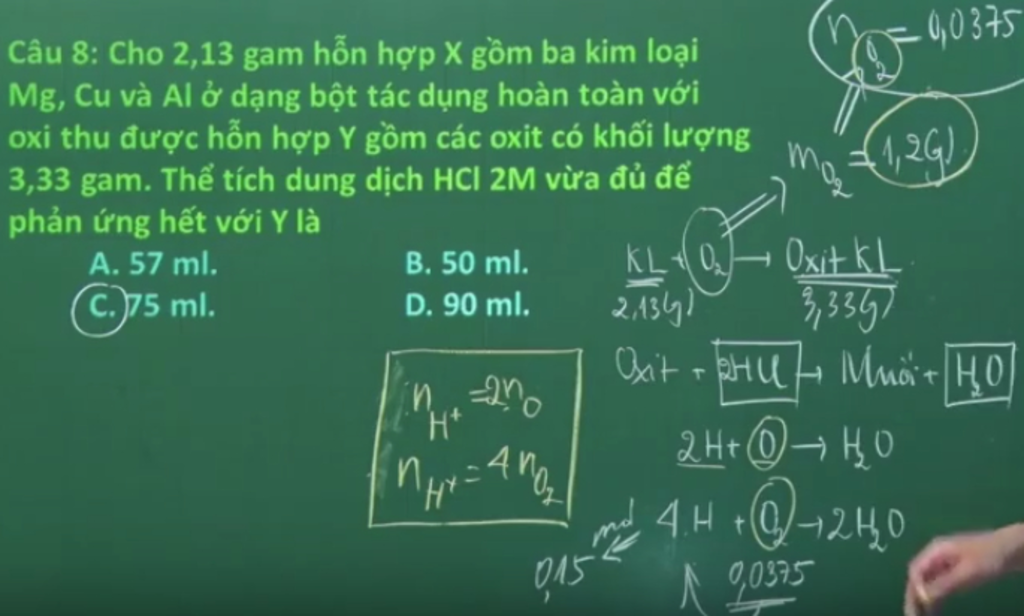 Câu 8: Cho 2,13 gam hỗn hợp X gồm ba kim loại
Mg, Cu và Al ở dạng bột tác dụng hoàn toàn với
oxi thu được hỗn hợp Y gồm các oxit có khối lượng
3,33 gam. Thể tích dung dịch HCl 2M vừa đủ để
phản ứng hết với Y là
A. 57 ml. B. 50 ml.
C. 75 ml. D. 90 ml.
n O₂ = 0,0375
m O₂ = 1,2(g)
KL + O₂ → Oxit KL
2,13(g) 3,33(g)
Oxit + 2HCl → Muối + H₂O
2H + O → H₂O
4.H + O₂ → 2H₂O
0,15 mol 0,0375
n H⁺ = 2n O
n H⁺ = 4n O₂